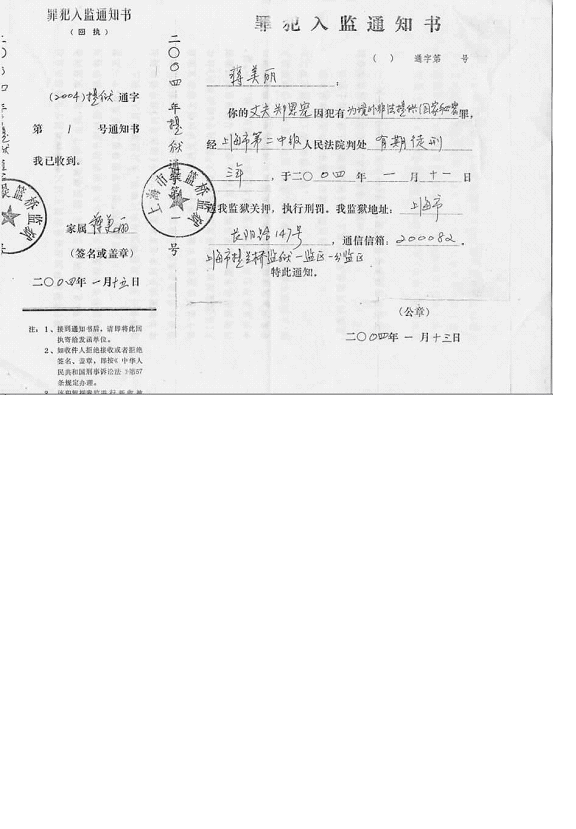 罪犯入监通知书
(回执)
(2004)提狱 通字
第 1 号通知书
我已收到。
家属 蒋美丽
(签名或盖章)
二〇〇四年 一月十五日
注：1、接到通知书后，请即将此回
执寄给发函单位。
2、如收件人拒绝接收或者拒绝
签名、盖章，即按《中华人
民共和国刑事诉讼法》第57
条规定办理。
二〇〇四年提狱通字第一号
上海市提篮桥监狱
罪犯入监通知书
( ) 通字第 号
蒋美丽：
你的丈夫郑恩宠因犯有为境外非法提供国家秘密罪，
经上海市第二中级人民法院判处 有期徒刑
三年，于二〇〇四 年 一 月 十一 日
送我监狱关押，执行刑罚。我监狱地址：上海市
长阳路147号，通信信箱：200082。
上海市提篮桥监狱一监区一分监区
特此通知。
(公章)
二〇〇四年 一 月十三日